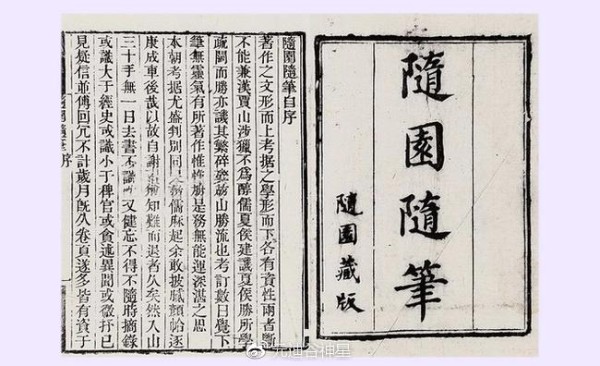 隨園隨筆
隨園藏版
隨園隨筆自序
著作之文形而上考据之學形而下各有資性兩者斷
不能兼漢賈山涉獵不為醇儒夏侯建譏夏侯勝所學
疏闊而勝亦譏其繁碎余故山勝流也考訂數日覺下
筆無靈氣有所著作惟捃摭是務無能運深湛之思
本朝考据尤盛判別同異諸儒麻起余敢披膩顏帢逐
康成車後哉以故自謝不敏知難而退者久矣然入山
三十年無一日去書不又健忘不得不隨時摘錄
或識大於經史或識小於稗官或貪述異聞或微抒己
見疑信並傳回冗不計歲月既久卷頁遂多皆有資于
序